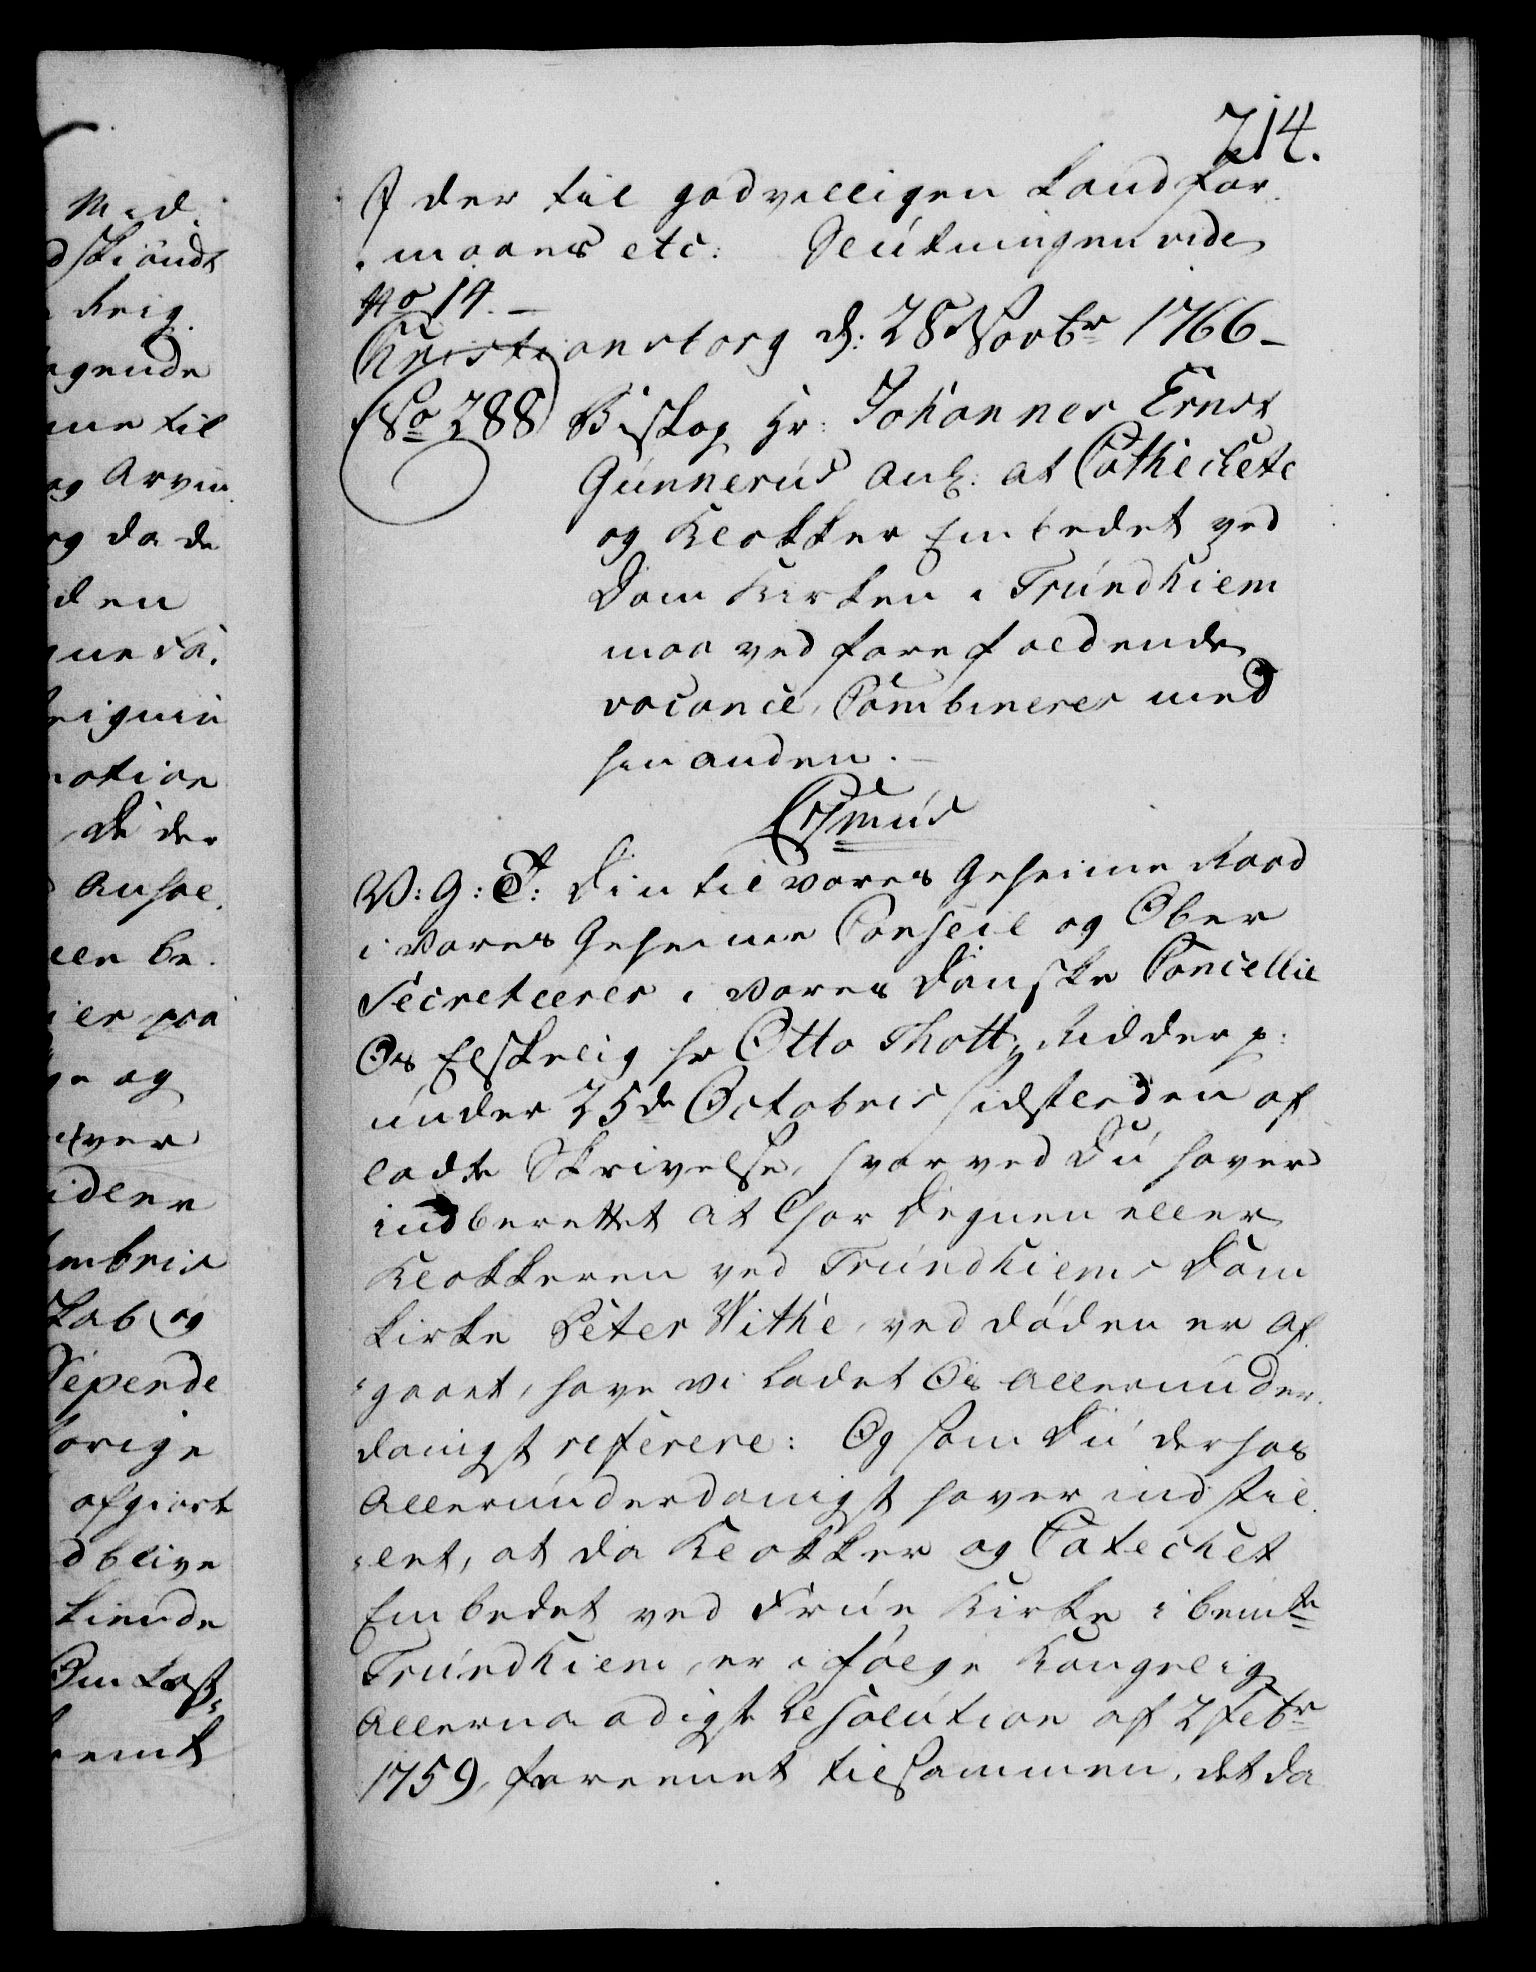 714.
I der til godvilligen kand for
maaes etc: Slutningen vide
No 14. —
Christiansborg d: 28 Novbr 1766 –
No 288 Biskop Hr: Johannes Ernst
Gunnerus anl: at Cathichete
og Klokker Embedet ved
Dom Kirken i Trundhiem
maa ved forefaldende
vacance, Combineres med
hinanden. –
V: G: T: Din til vores Geheime Raad
i vores Geheime Conseil og Ober
Secreterer i vores Danske Cancellie
Os Elskelig Hr Otto Thott, Ridder p:
under 25de Octobris sidstleden af
ladte Skrivelse, hvorved Du haver
indberettet at Chor Degnen eller
Klokkeren ved Trundhiems Dom
kirke Peter Withe, ved døden er af
gaaet, have vi ladet Os allerunder
danigst referere: Og som Du derhos
Allerunderdanigst haver indstil
let, at da Klokker og Catechet
Embedet ved Frue Kirke i bemte
Trundhiem, er i følge Kongelig
Allernaadigste Resolution af 2 Febr
1759, foreenet tilsammen, det da
Med
d skiøndt
Krig
gende
me til
og Arvin
og da de
den
gnesa
rignin
nation
De der
Anhol
len be
ier paa
ge og
fver
idler
mbris
kab og
Sepende
orige
afgiort
d blive
kiende
Omkost
bemt